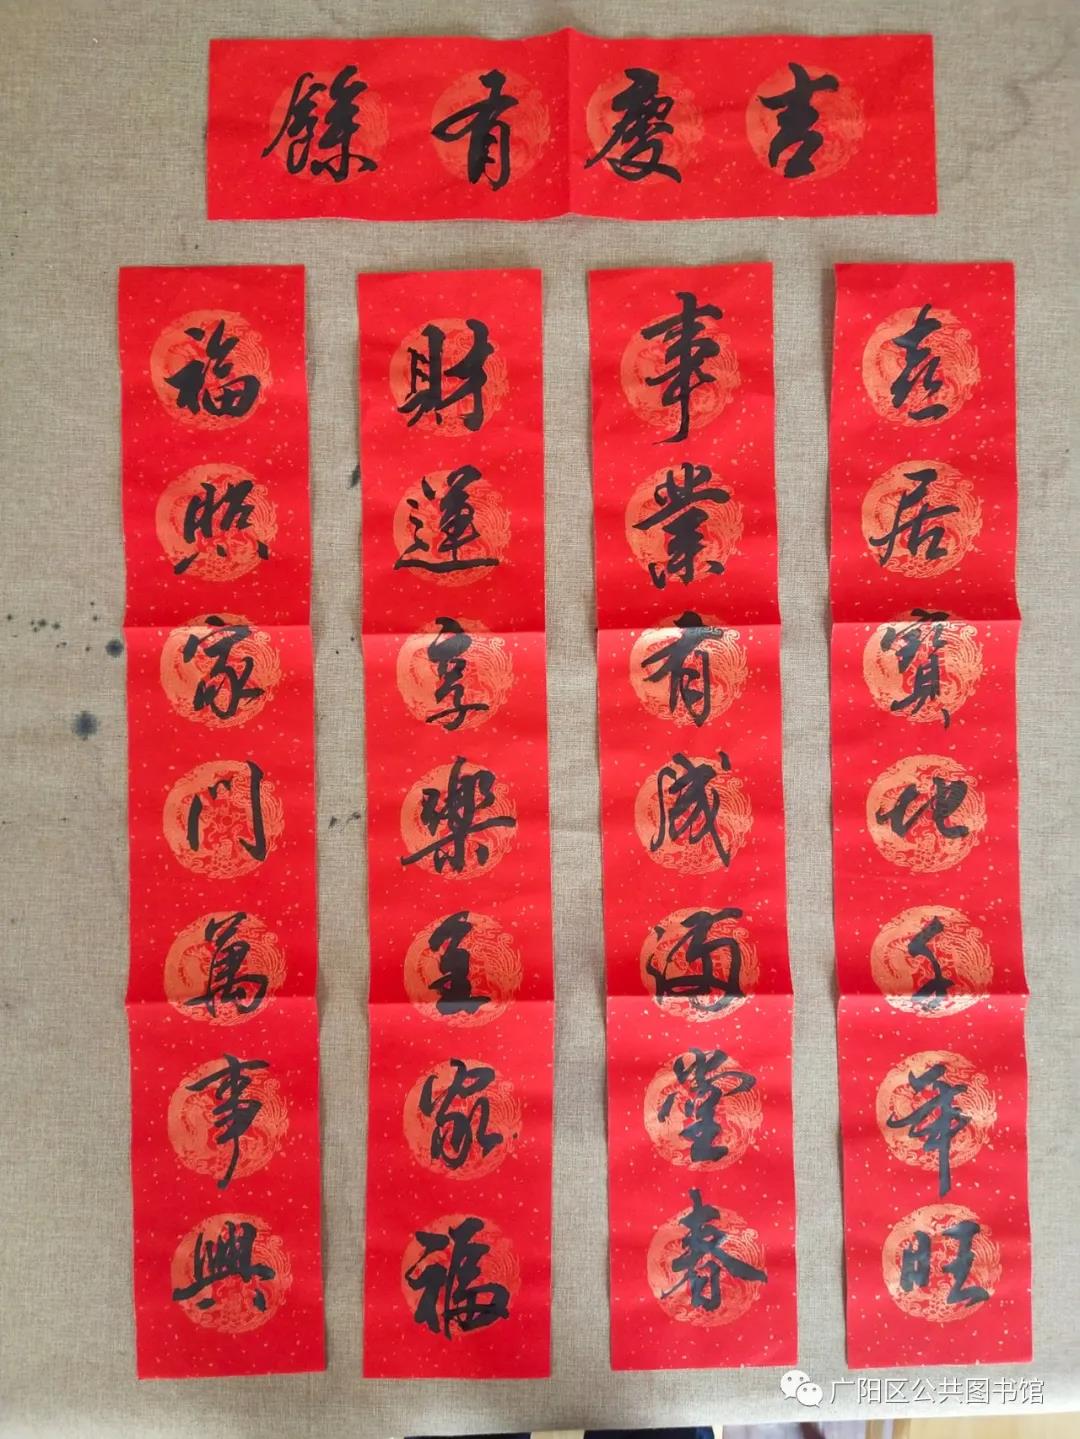 吉慶有餘
喜居寶地千年旺
事業有成滿堂春
財運享樂全家福
福照家門萬事興
广阳区公共图书馆